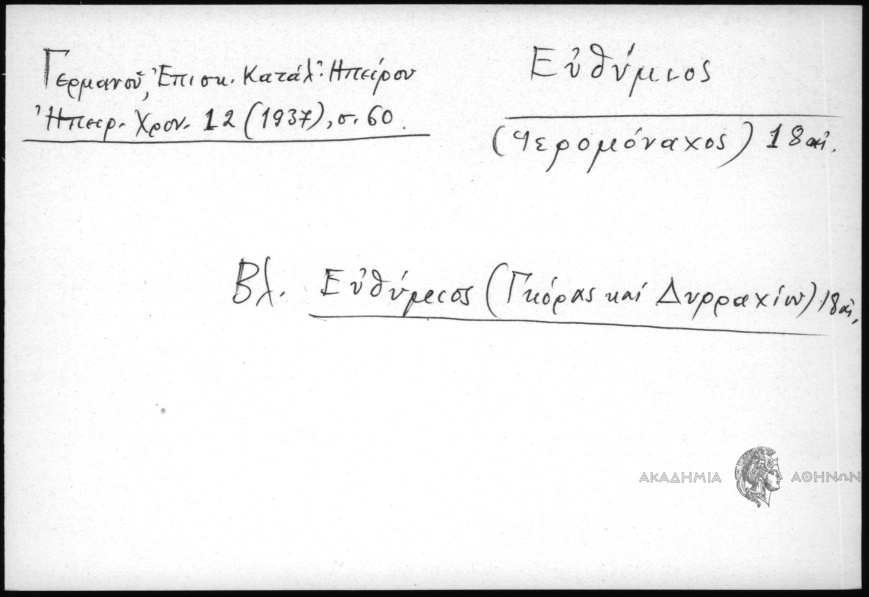 Γερμανοῦ, Ἐπισκ. Κατάλ. Ἠπείρου
Ἠπειρ. Χρον. 12 (1937), σ. 60.
Εὐθύμιος
(Ἱερομόναχος) 18 αἰ.
Βλ. Εὐθύμιος (Γκόρας καί Δυρραχίου) 18 αἰ.
ΑΚΑΔΗΜΙΑ ΑΘΗΝΩΝ